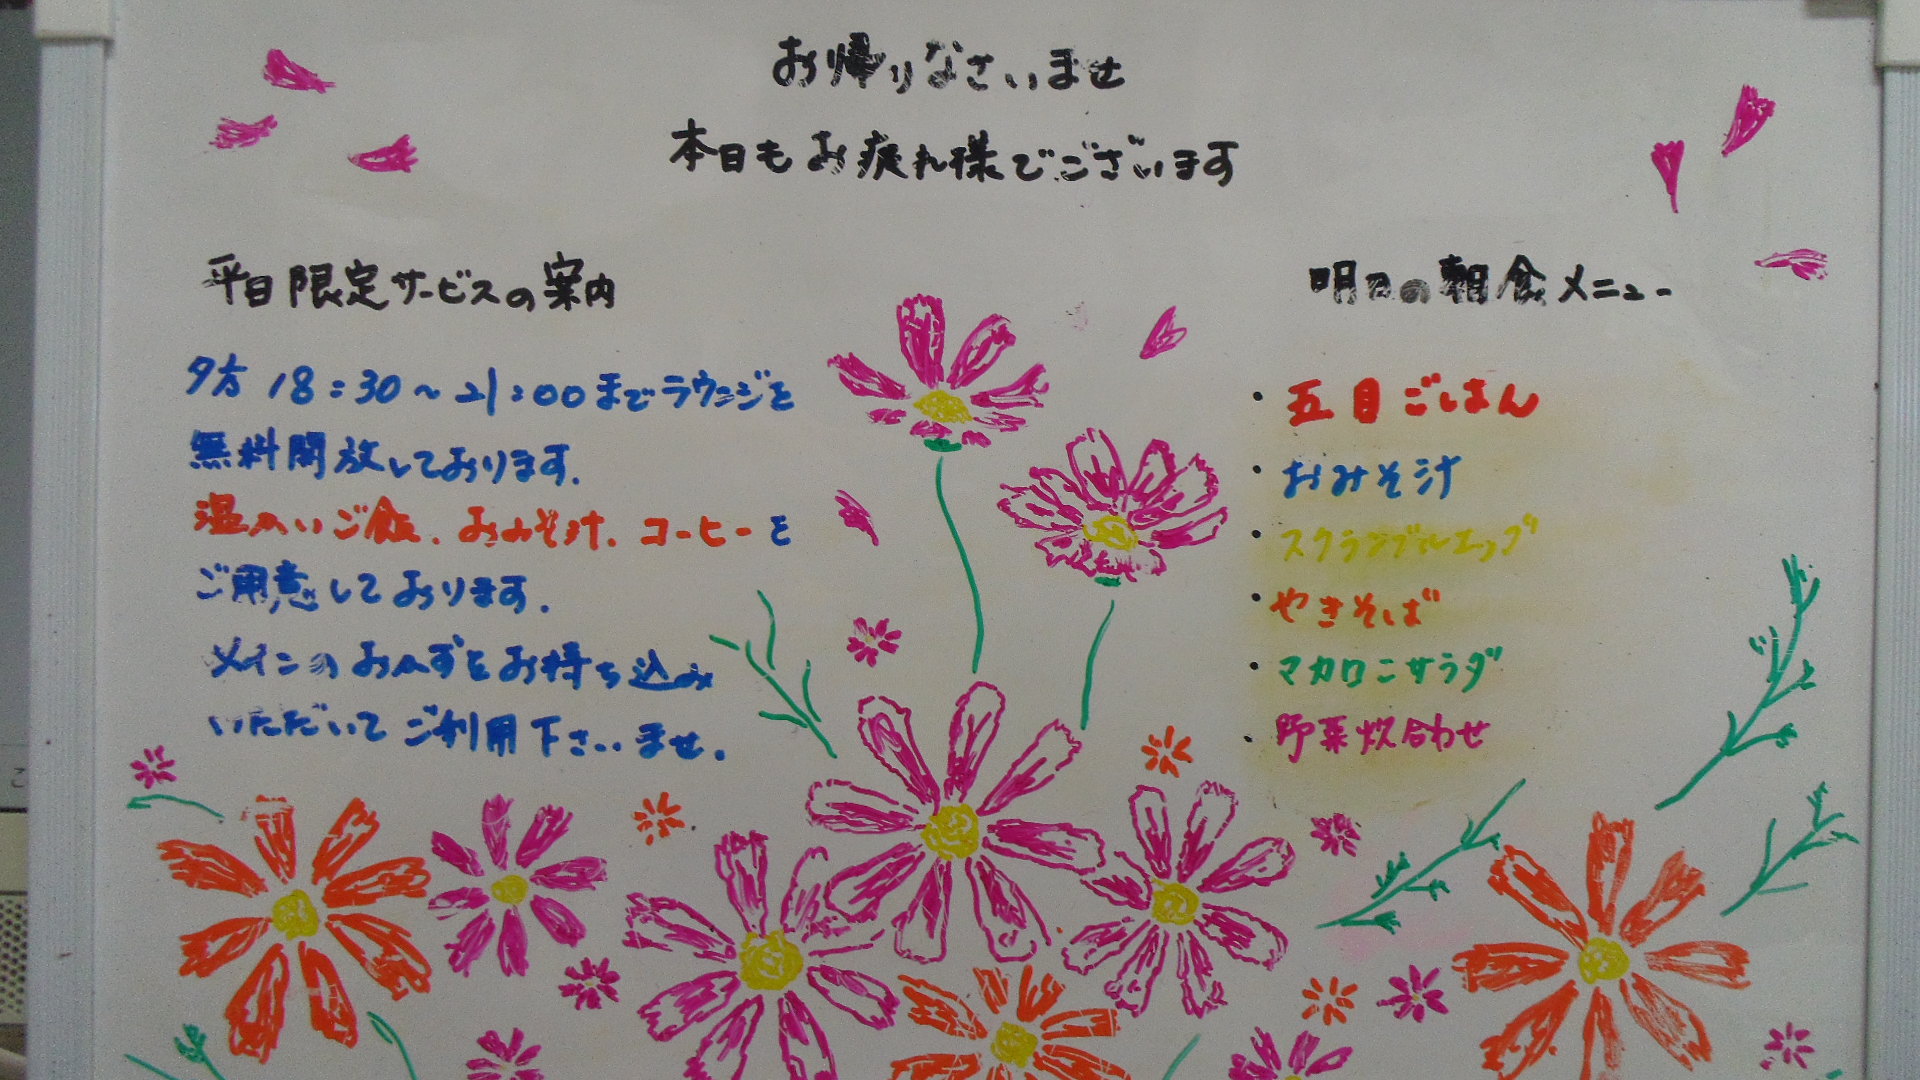 お帰りなさいませ
本日もお疲れ様でございます
平日限定サービスの案内
夕方18:30～21:00までラウンジを
無料開放しております.
温かいご飯.おみそ汁.コーヒーを
ご用意しております.
メインのおかずをお持ち込み
いただいてご利用下さいませ.
明日の朝食メニュー
・五目ごはん
・おみそ汁
・スクランブルエッグ
・やきそば
・マカロニサラダ
・野菜炊合わせ